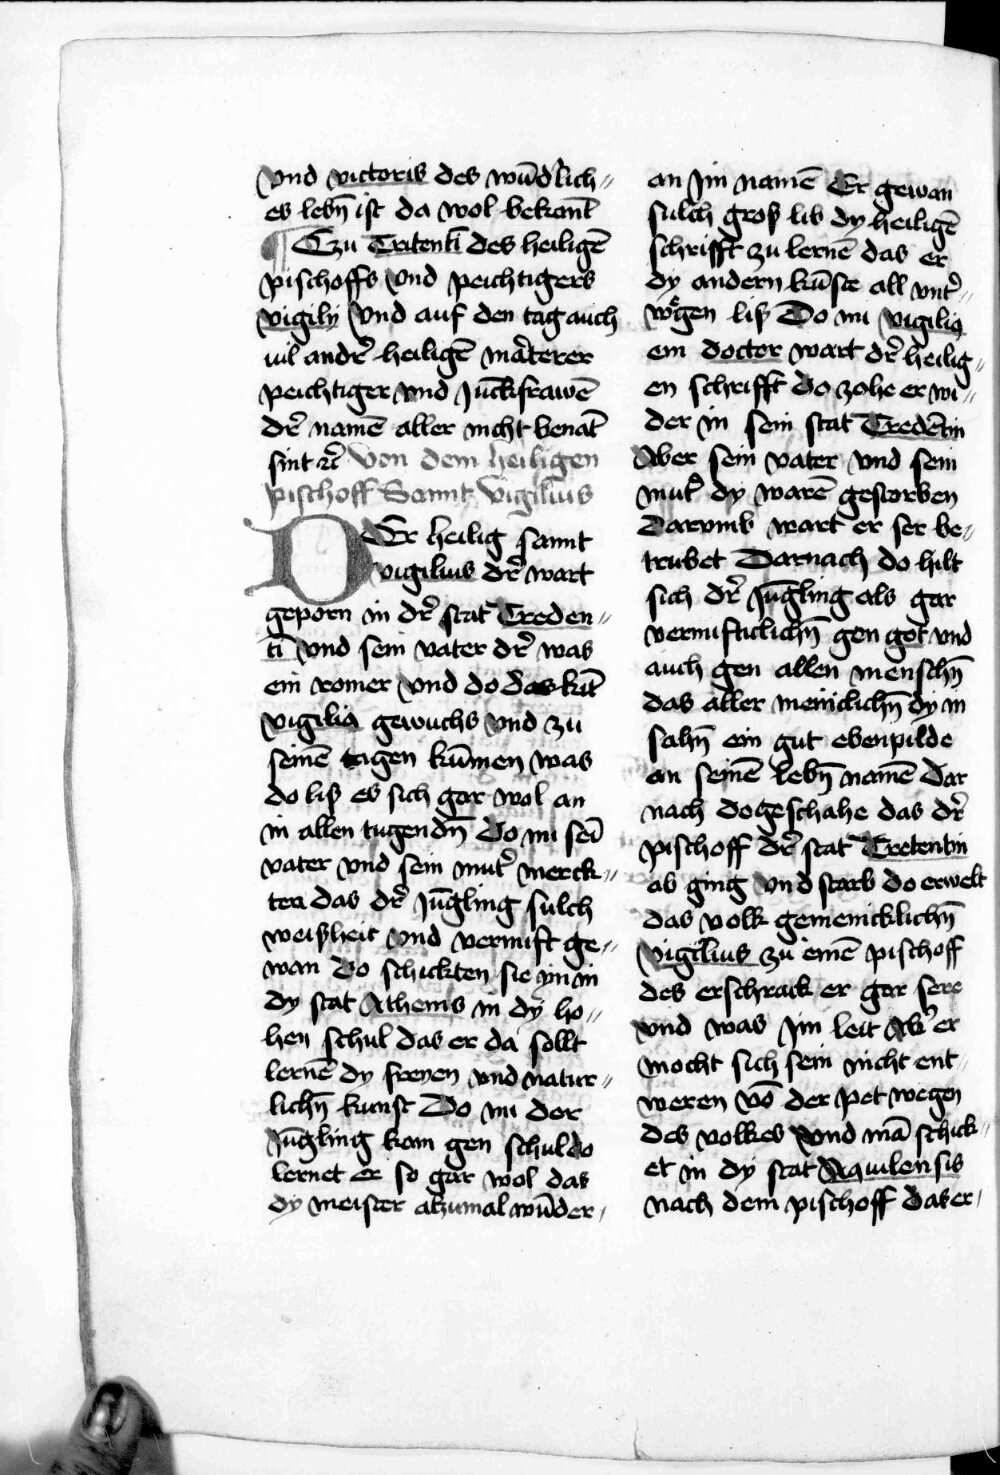 vnd victoris des wūdʼlich〃
es lebn̄ ist da wol bekant̄
¶ Czu Tritentī des heiligē
pischoffs vnd peichtigers
vigilij vnd auf den tag auch
uil andrʼ heiligē māterer
peichtiger vnd Juckfrawē
drʼ namē aller nicht benāt
sint ꝛc̄ Von dem heiligen
pischoff Sannt Vigilius
DEr heilig sannt
vigilius drʼ wart
geporn in drʼ stat Treden〃
tī vnd sein vater drʼ was
ein romer vnd do das kīt
vigiliꝯ gewuchs vnd zu
seinē tagen kūmen was
do liß es sich gar wol an
in allen tugendn̄ Do nu seī
vater vnd sein mutʼ merck〃
ten das drʼ Jūgling sulch
weißheit vnd vernuft ge〃
wan Do schickten sie yn in
dy stat Athenis in dy ho〃
hen schul das er da sollt
lernē dy freyen vnd natur〃
lichn̄ kunst Do nu der
Jūgling kam gen schul do
lernet er so gar wol das
dy meister alzumal wūder〃
an Jm namē Er gewan
sulch groß lib dy heiligē
schrifft zu lernē das er
dy andern kūste all vntʼ〃
wegen liß Do nu vigiliꝯ
ein doctor wart drʼ heilig〃
en schrifft do zohe er wi〃
der in sein stat Tredētin
Aber sein vater vnd sein
mutʼ dy warē gestorben
Darvmb wart er ser be〃
trubet Darnach do hilt
sich drʼ Jūgling als gar
vernufticlichn̄ gen got vnd
auch gen allen menschn̄
das aller meniclichn̄ dy in
sahn̄ ein gut ebenpilde
an seinē lebn̄ namē Dar
nach do geschahe das drʼ
pischoff drʼ stat Tretentin
ab ging vnd starb do erwelt
das volk gemenicklichn̄
vigilius zu einē pischoff
des erschrack er gar sere
vnd was Jm leit Abʼ er
mocht sich sein nicht ent〃
weren vō der pet wegen
des volkes vnd mā schick〃
et in dy stat Aquilensis
nach dem pischoff das er〃